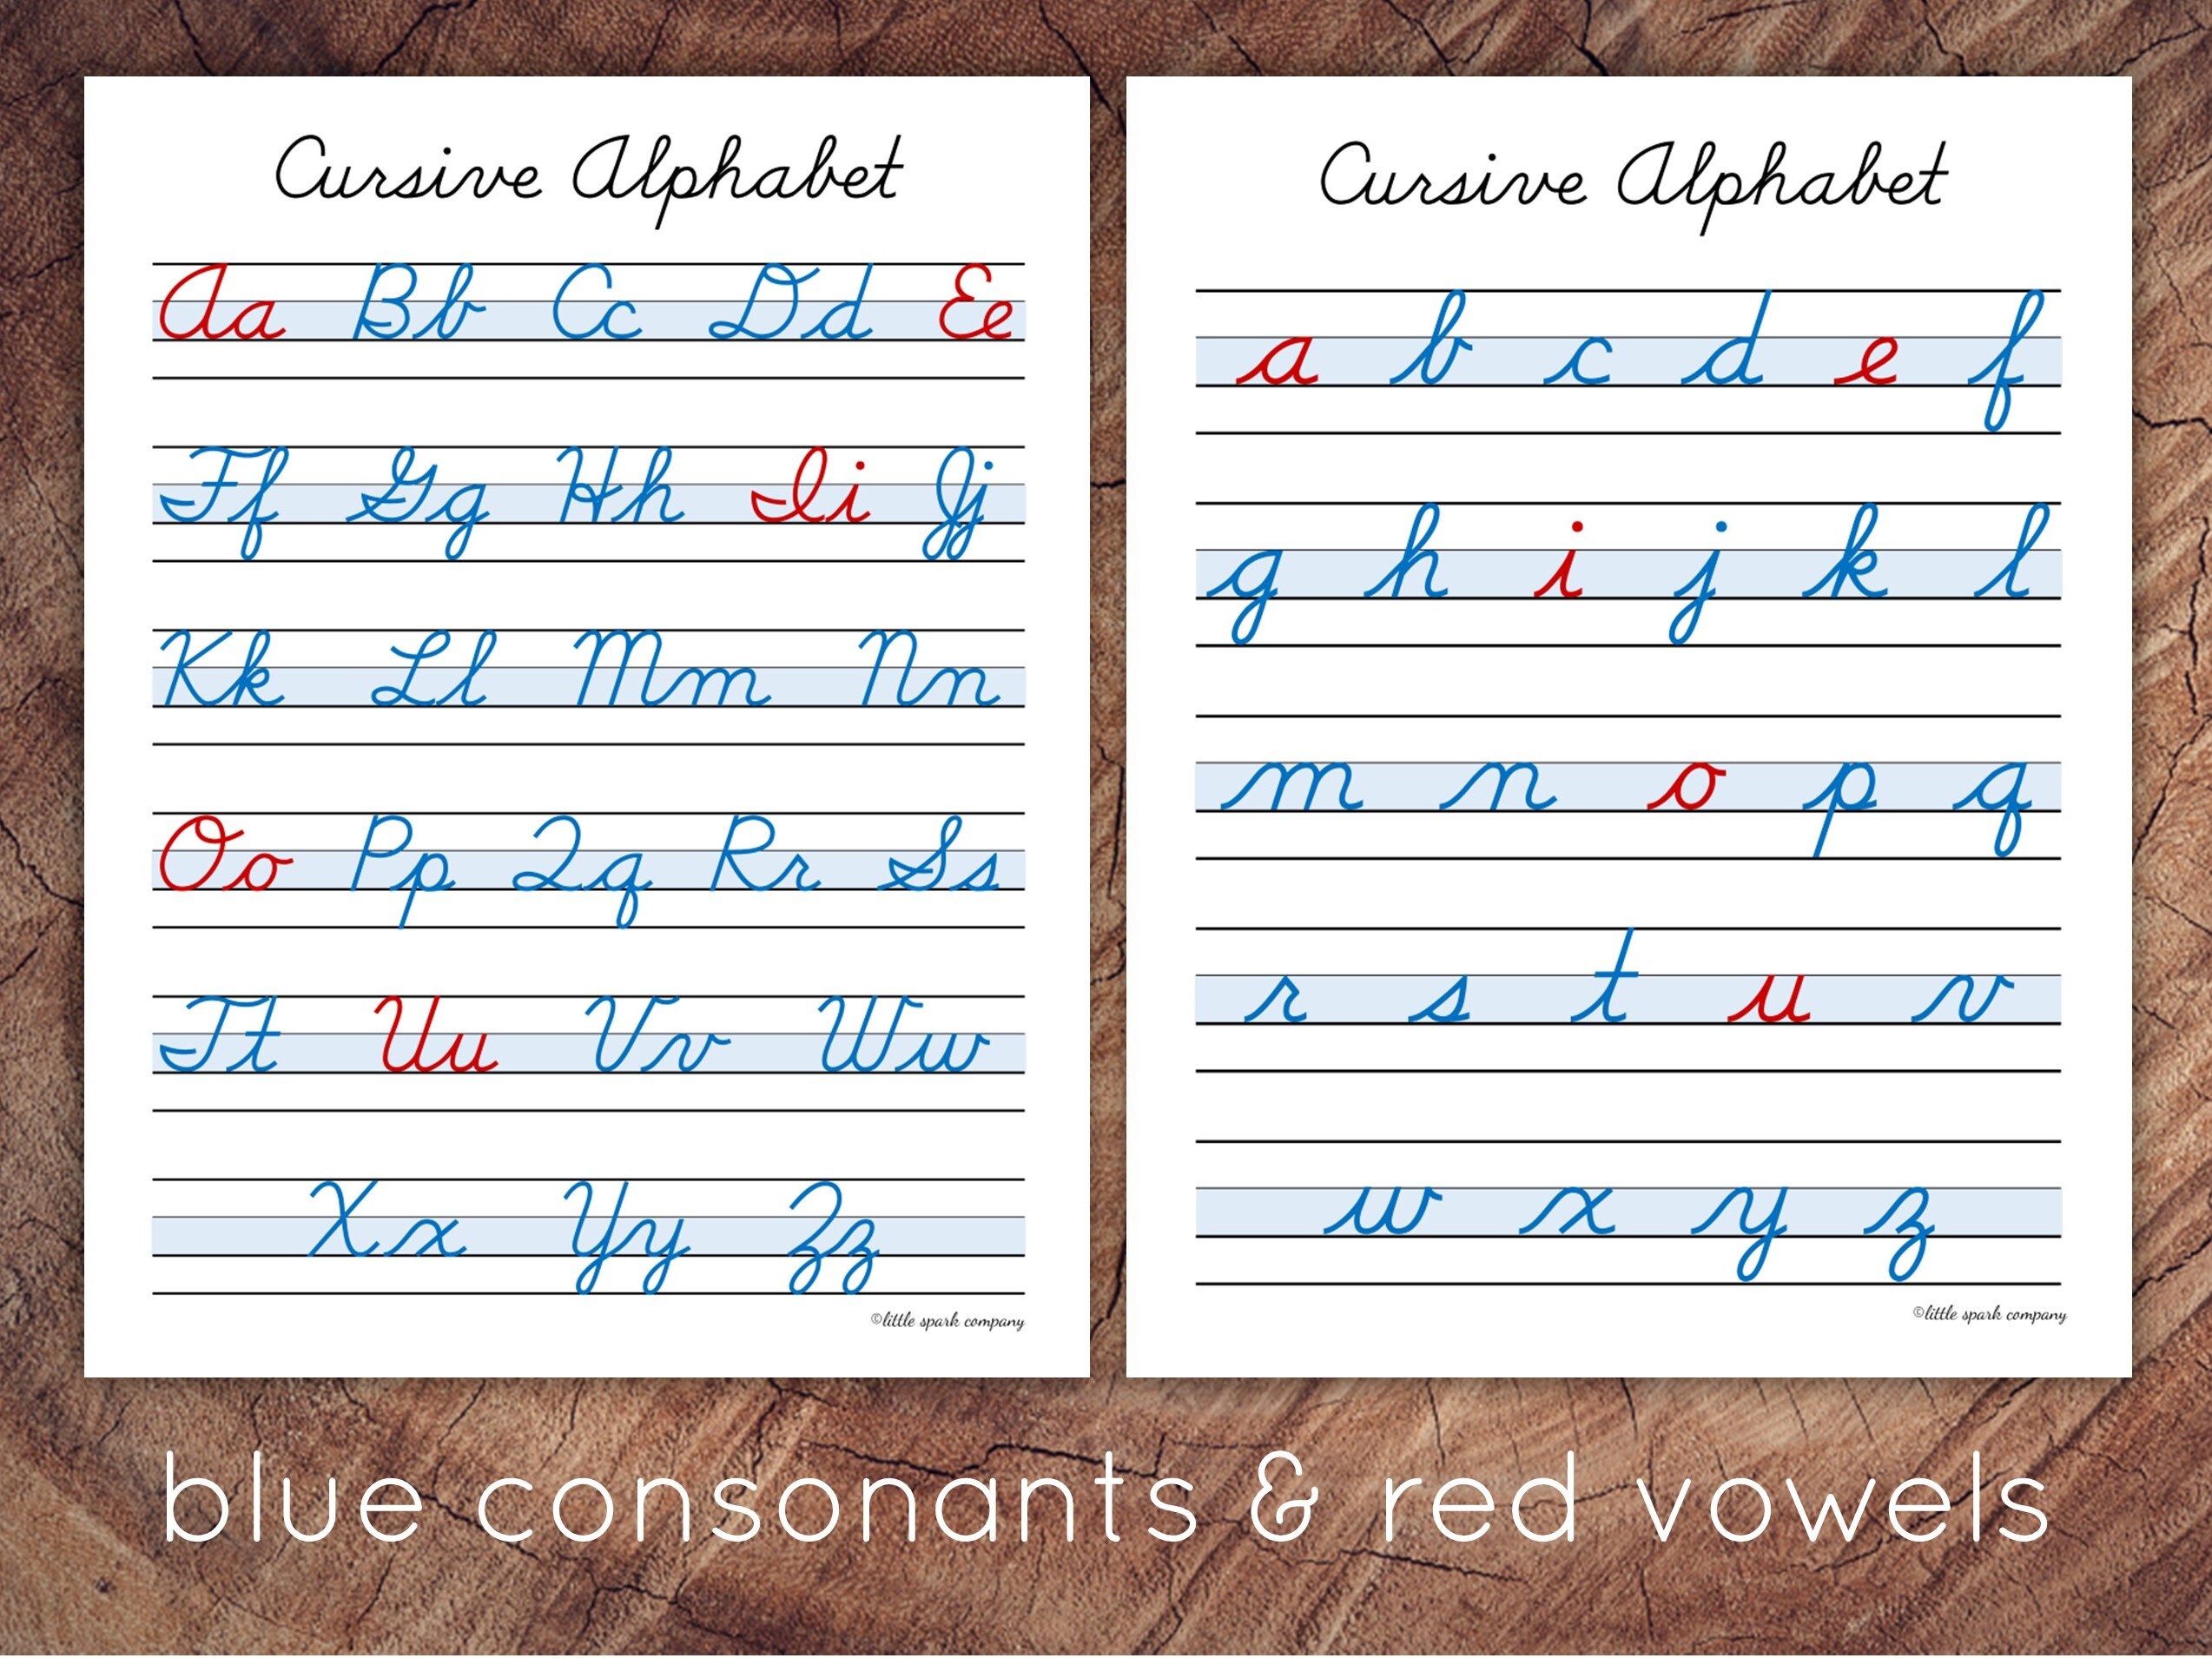 Cursive Alphabet
Aa Bb Cc Dd Ee
Ff Gg Hh Ii Jj
Kk Ll Mm Nn
Oo Pp Qq Rr Ss
Tt Uu Vv Ww
Xx Yy Zz
©little spark company
Cursive Alphabet
a b c d e f
g h i j k l
m n o p q
r s t u v
w x y z
©little spark company
blue consonants & red vowels